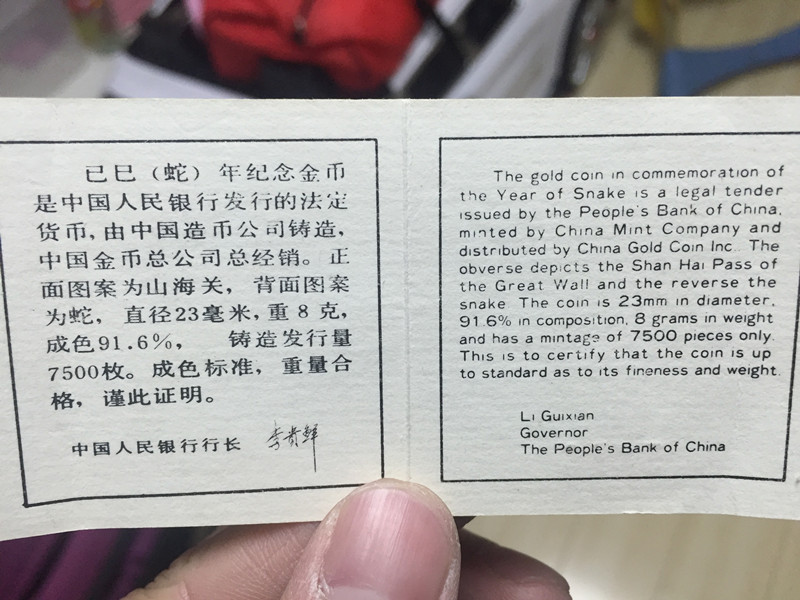 己巳（蛇）年纪念金币
是中国人民银行发行的法定
货币,由中国造币公司铸造,
中国金币总公司总经销。正
面图案为山海关，背面图案
为蛇，直径23毫米,重8克,
成色91.6%，铸造发行量
7500枚。成色标准，重量合
格，谨此证明。
中国人民银行行长 李贵鲜
The gold coin in commemoration of
the Year of Snake is a legal tender
issued by the People's Bank of China,
minted by China Mint Company and
distributed by China Gold Coin Inc. The
obverse depicts the Shan Hai Pass of
the Great Wall and the reverse the
snake. The coin is 23mm in diameter,
91.6% in composition, 8 grams in weight
and has a mintage of 7500 pieces only.
This is to certify that the coin is up
to standard as to its fineness and weight.
Li Guixian
Governor
The People's Bank of China